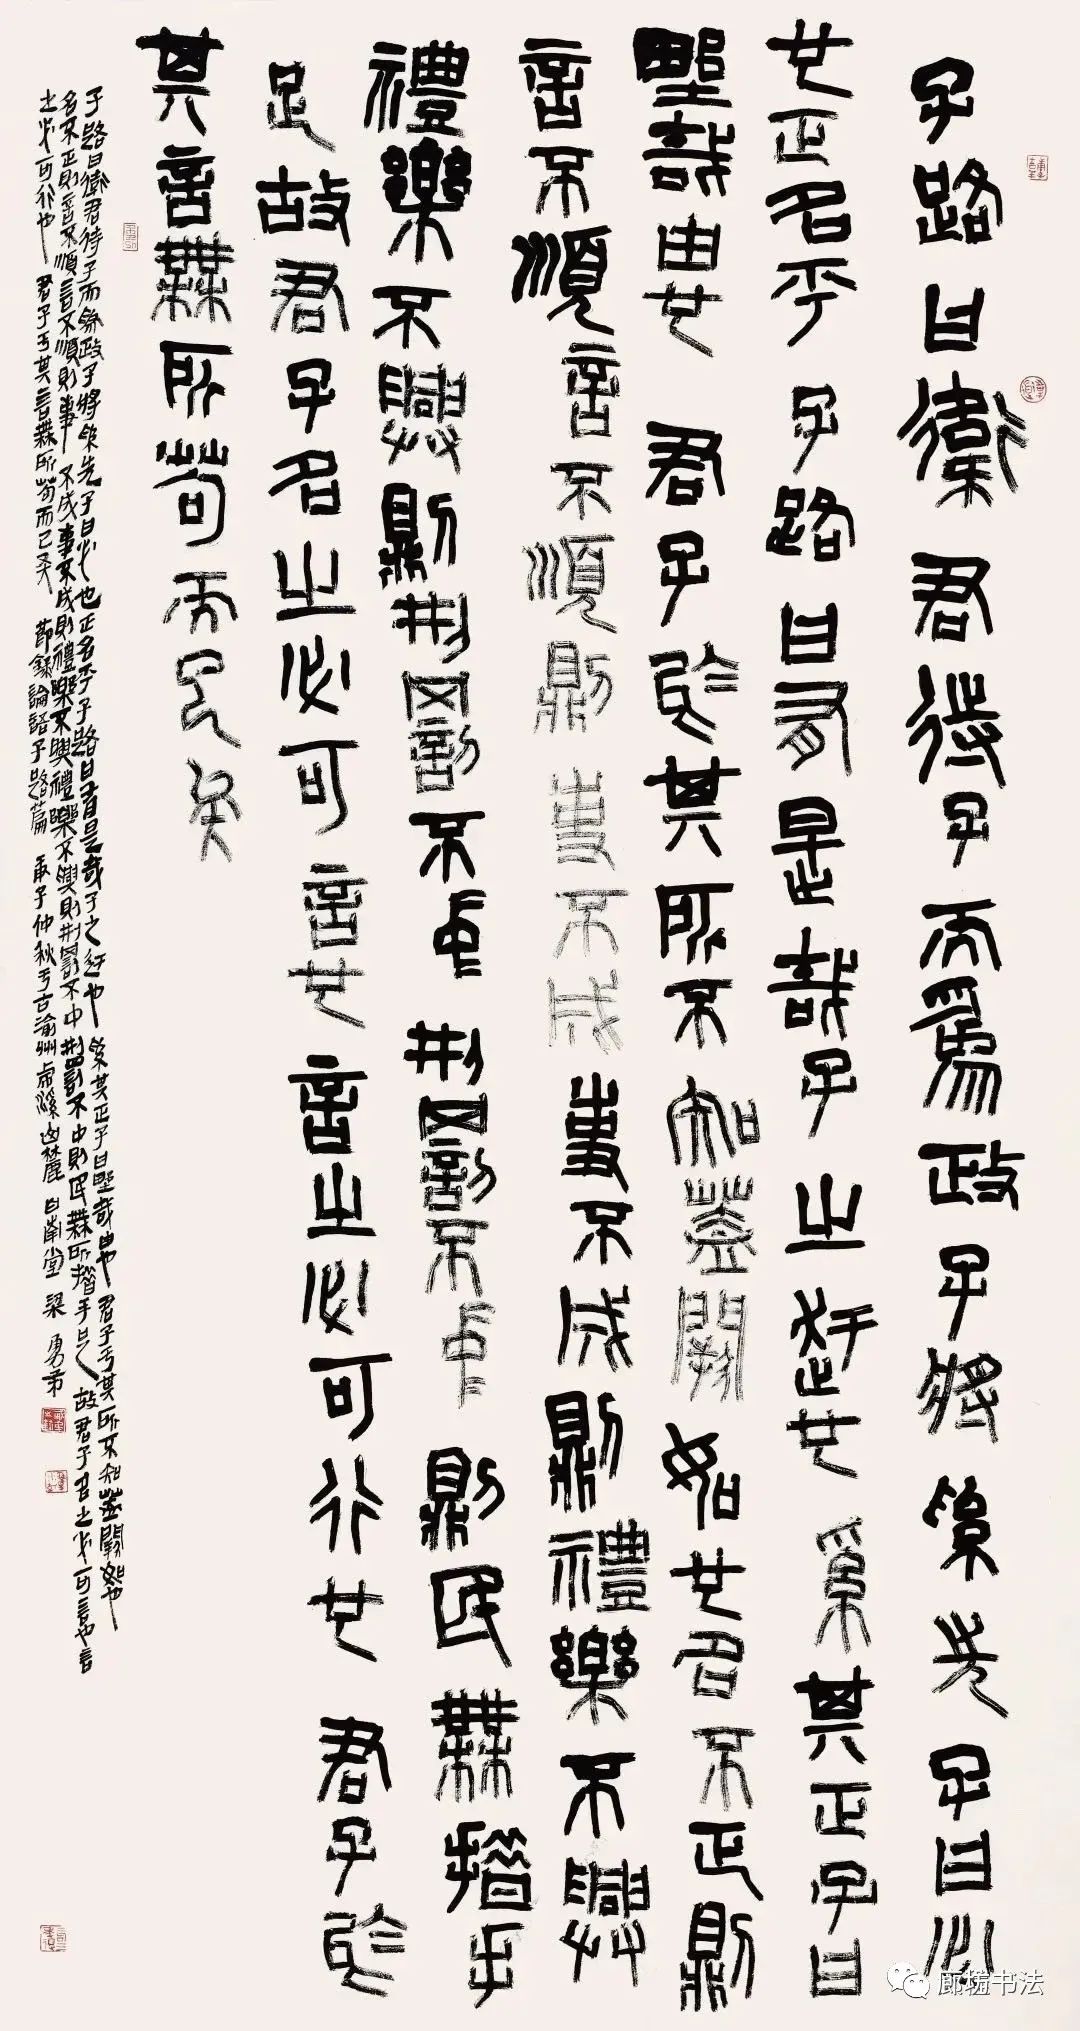 子路曰衛君待子而為政子將奚先子曰必
也正名乎子路曰有是哉子之迂也奚其正子曰
野哉由也君子於其所不知蓋闕如也名不正則
言不順言不順則事不成事不成則禮樂不興
禮樂不興則刑罰不中刑罰不中則民無措手
足故君子名之必可言也言之必可行也君子於
其言無所苟而已矣
子路曰衛君待子而為政子將奚先子曰必也正名乎子路曰有是哉子之迂也奚其正子曰野哉由也君子于其所不知蓋闕如也
名不正則言不順言不順則事不成事不成則禮樂不興禮樂不興則刑罰不中刑罰不中則民無所措手足故君子名之必可言也言
之必可行也君子于其言無所苟而已矣節錄論語子路篇庚子仲秋于古渝州虎溪山麓南堂梁勇
书法